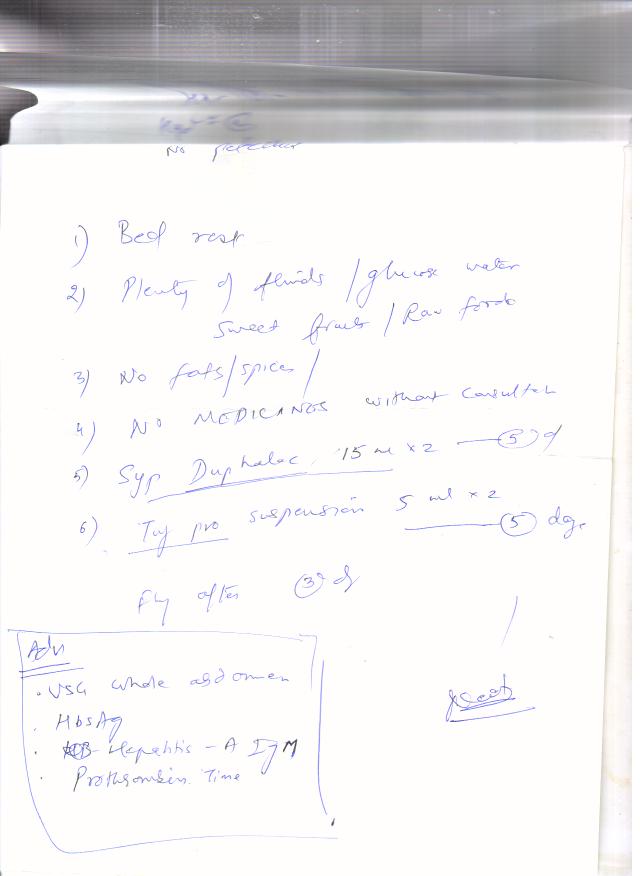 No
1) Bed rest
2) Plenty of fluids / glucose water
Sweet fruits / Raw foods
3) No fats/spices/
4) No MEDICANES without Consultan
5) Syp Duphalac 15 ml x 2 — 5 d
6) Taj pro suspension 5 ml x 2
5 days
after 3 d
Adv
. USG whole abdomen
. HbsAg
. Hepatitis - A IgM
. Prothrombin Time